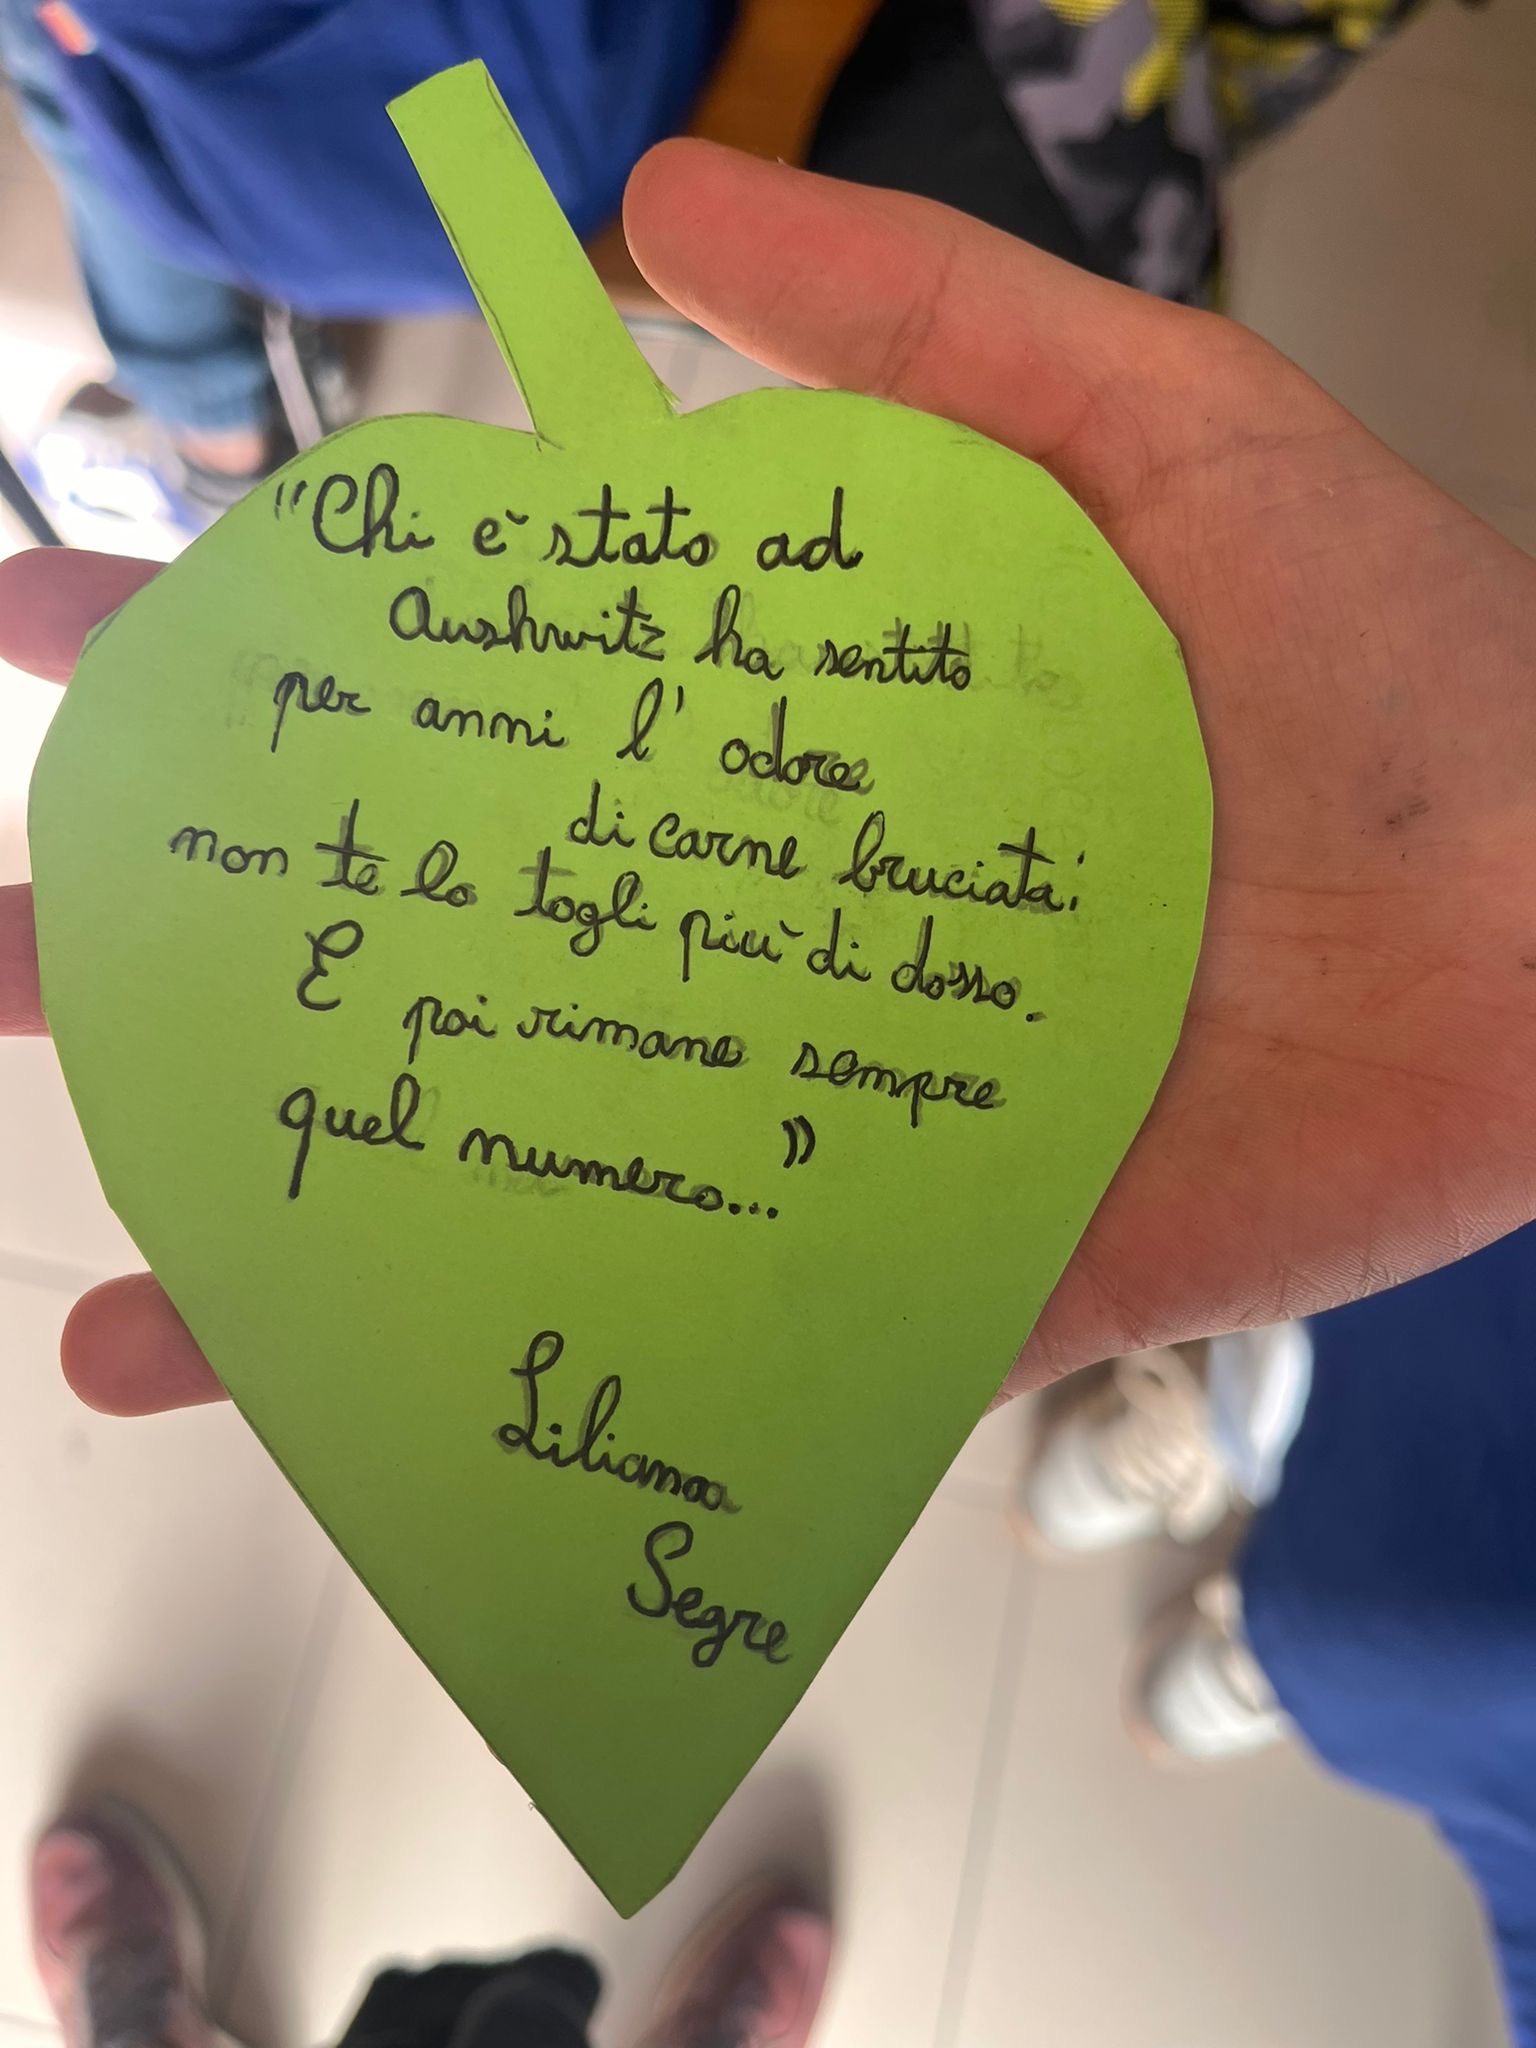 "Chi è stato ad
Aushwitz ha sentito
per anni l'odore
di carne bruciata:
non te lo togli più di dosso.
E poi rimane sempre
quel numero..."
Liliana
Segre